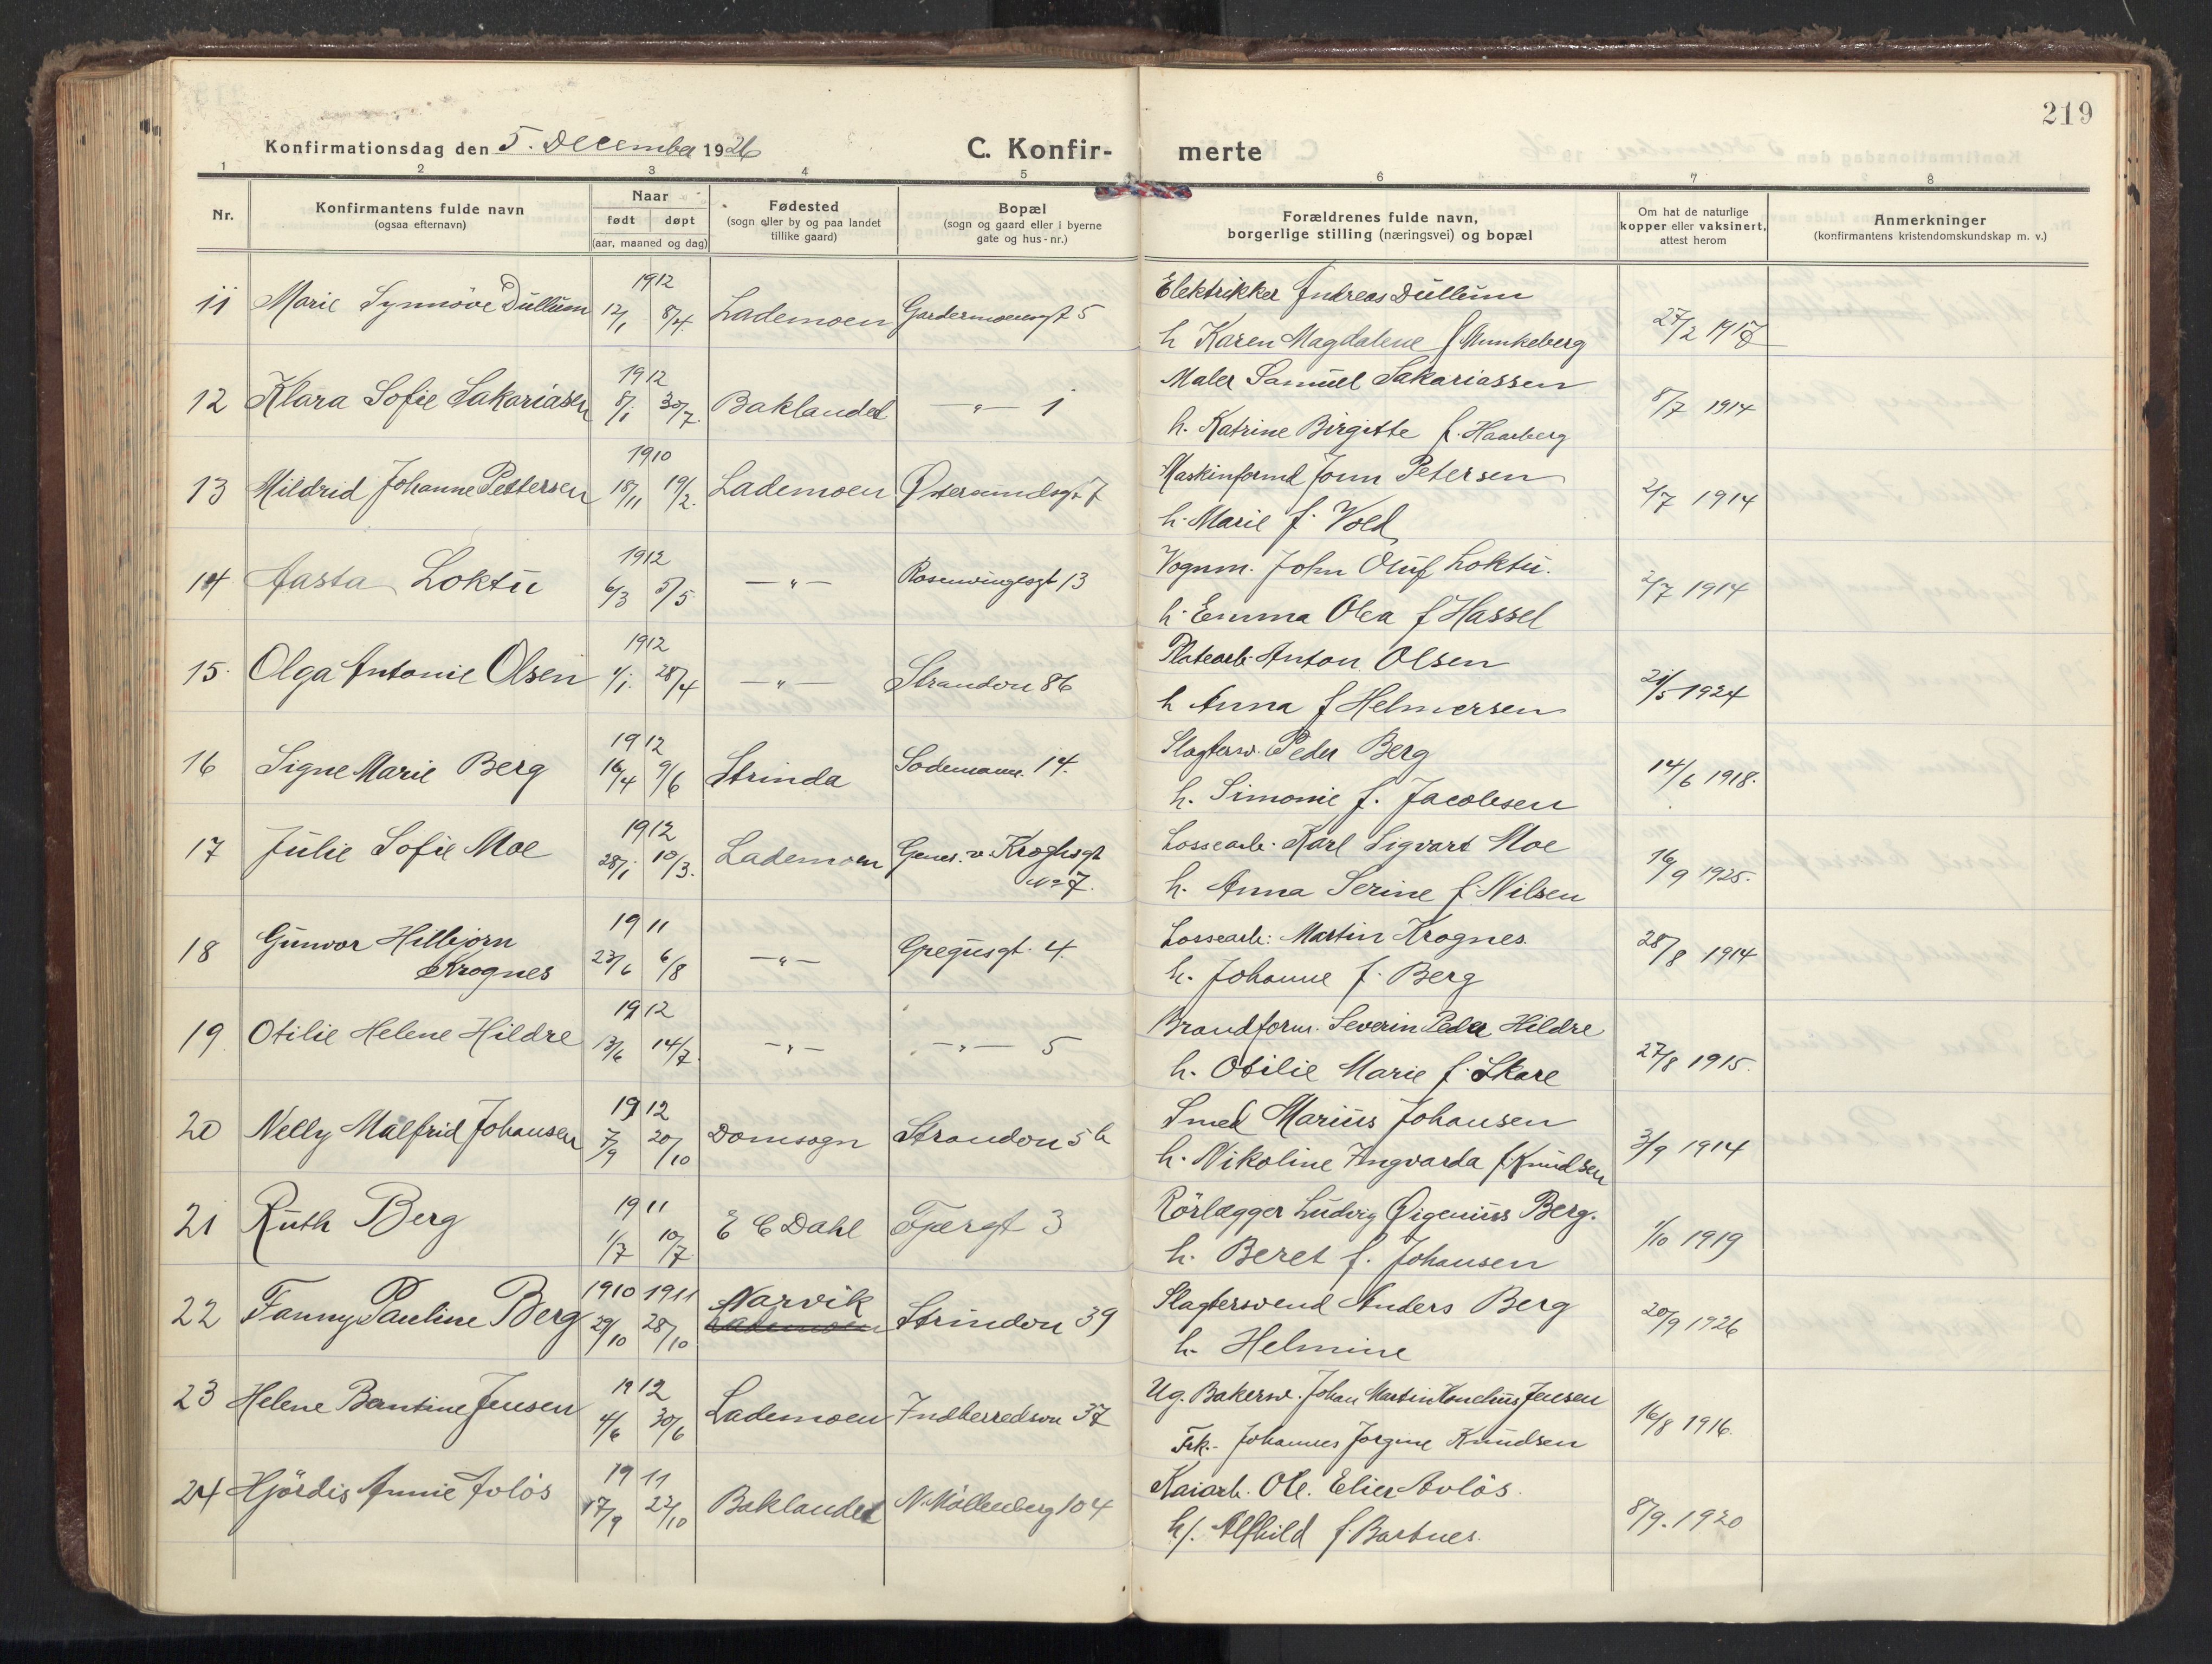 219
Konfirmationsdag den 5. December 1926
C. Konfir- merte
1 2 3 4 5 6 7 8
Nr.
Konfirmantens fulde navn
(ogsaa efternavn)
Naar
født døpt
(aar, maaned og dag)
Fødested
(sogn eller by og paa landet
tillike gaard)
Bopæl
(sogn og gaard eller i byerne
gate og hus-nr.)
Forældrenes fulde navn,
borgerlige stilling (næringsvei) og bopæl
Om hat de naturlige
kopper eller vaksinert,
attest herom
Anmerkninger
(konfirmantens kristendomskundskap m. v.)
1912
11 Marie Synnöve Dullum 12/1 8/4 Lademoen Gardermoensgt 5
Elektrikker Andreas Dullum
h Karen Magdalene f Munkeberg
27/2 1917
1912
12 Klara Sofie Sakariasen 8/1 30/7. Baklandet —"— 1
Maler Samuel Sakariassen
h. Katrine Birgitte f. Haarberg
8/7 1914
1910
13 Mildrid Johanne Pettersen 18/11 19/2. Lademoen Østersundsgt 7
Maskinformd Petersen
h. Marie f. Vold
2/7 1914
1912
14 Aasta Loktu 6/3 5/5 —"— Rosenvingesgt 13
Vognm. John Oluf Loktu.
h. Emma Olea f Hassel
2/7 1914
1912
15. Olga Antonie Olsen 4/1. 28/4 —"— Strandvn 86
Platearb. Anton Olsen
h Anna f Helmersen
21/5 1924
1912
16 Signe Marie Berg 16/4 9/6 Strinda Sodemanns. 14.
Slagtersv. Peder Berg
h. Simonie f. Jacobsen
14/6 1918.
1912
17 Julie Sofie Moe 28/1 10/3. Lademoen Gener. v. Kroghsgt
No 7.
Lossearb. Karl Sigvart Moe
h. Anna Serine f. Nilsen
16/9 1925.
1911
18 Gunvor Hilbjørn
Krognes 23/6 6/8 —"— Gregusgt. 4.
Lossearb: Martin Krognes.
h. Johanne f. Berg
28/8 1914
1912
19 Otilie Helene Hildre 13/6 14/7. —"— —"— 5
Brandform. Severin Peder Hildre
h. Otilie Marie f. Skare
27/8 1915.
1912
20 Nelly Målfrid Johansen 7/9 20/10 Domsogn Strandvn 5 b
Smed Marius Johansen
h. Nikoline Ingvarda f. Knudsen
3/9 1914
1911
21 Ruth Berg 1/7 10/7. E C Dahl Tjærgt 3
Rörlægger Ludvig Øigenius Berg.
h. Beret f. Johansen
1/10 1919
1910 1911 Narvik
22 Fanny Pauline Berg 29/10 28/10 Lademoen Strindvn 39
Slagtersvend Anders Berg
h. Helmine
20/9 1926
1912
23 Helene Berntine Jensen 4/6 30/6 Lademoen Indherredsvn 37
Ug. Bakersv. Johan Martin Jensen
Frk. Johannes Jørgine Knudsen
16/8 1916.
1911
24 Hjördis Annie Avløs 17/9 22/10 Baklandet N. Möllenberg 104
Kaiarb. Ole. Elier Avløs.
h/. Alfhild f. Bartnes.
8/9. 1920